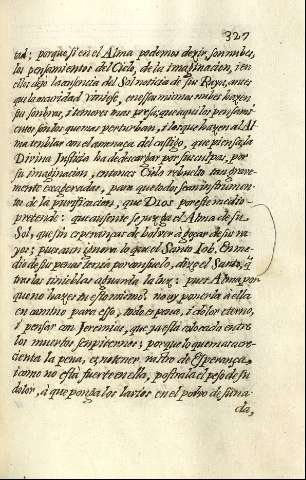 327
porque si en el Alma podemos dezir, son nubes,
los pensamientos del Cielo, de la imaginacion, i en
ellas dexo la ausencia del Sol noticia de sus Rayos, aun
que la oscuridad en essas mismas nubes hazen
su sombra, i temores mas presa; que aqui los pensami
entos son los que mas perturban, i los que hazen al Al
ma temblar en el amenaça del castigo, que piensa la
Divina Justizia ha de descargar por sus culpas, por
su imaginacion, entonces Cielo rebuelto tan grave
mente exageradas, para que todos sean instrumen
to de la purificacion, que Dios por este medio
pretende: que ausente se juzga el Alma de su
Sol, que sin esperanças de bolver à gozar de sus ra
yos; pues aun ignora lo que el Santo Iob, en me
dio de sus penas tenia por consuelo, dize el Santo, q
tras las tinieblas aguarda la luz: pues Alma por
que no hazes tu esto mismo? no ay ponerla à ella
en camino para esso, todo es pena, i dolor eterno,
i pensar con Jeremias, que ya està colocada entre
los muertos sempiternos; porque lo que mas acre
cienta la pena, es no tener rastro de Esperança,
i como no està fuerte en ella, postrala el peso de su
dolor, à que ponga los labios en el polvo de su na
da,